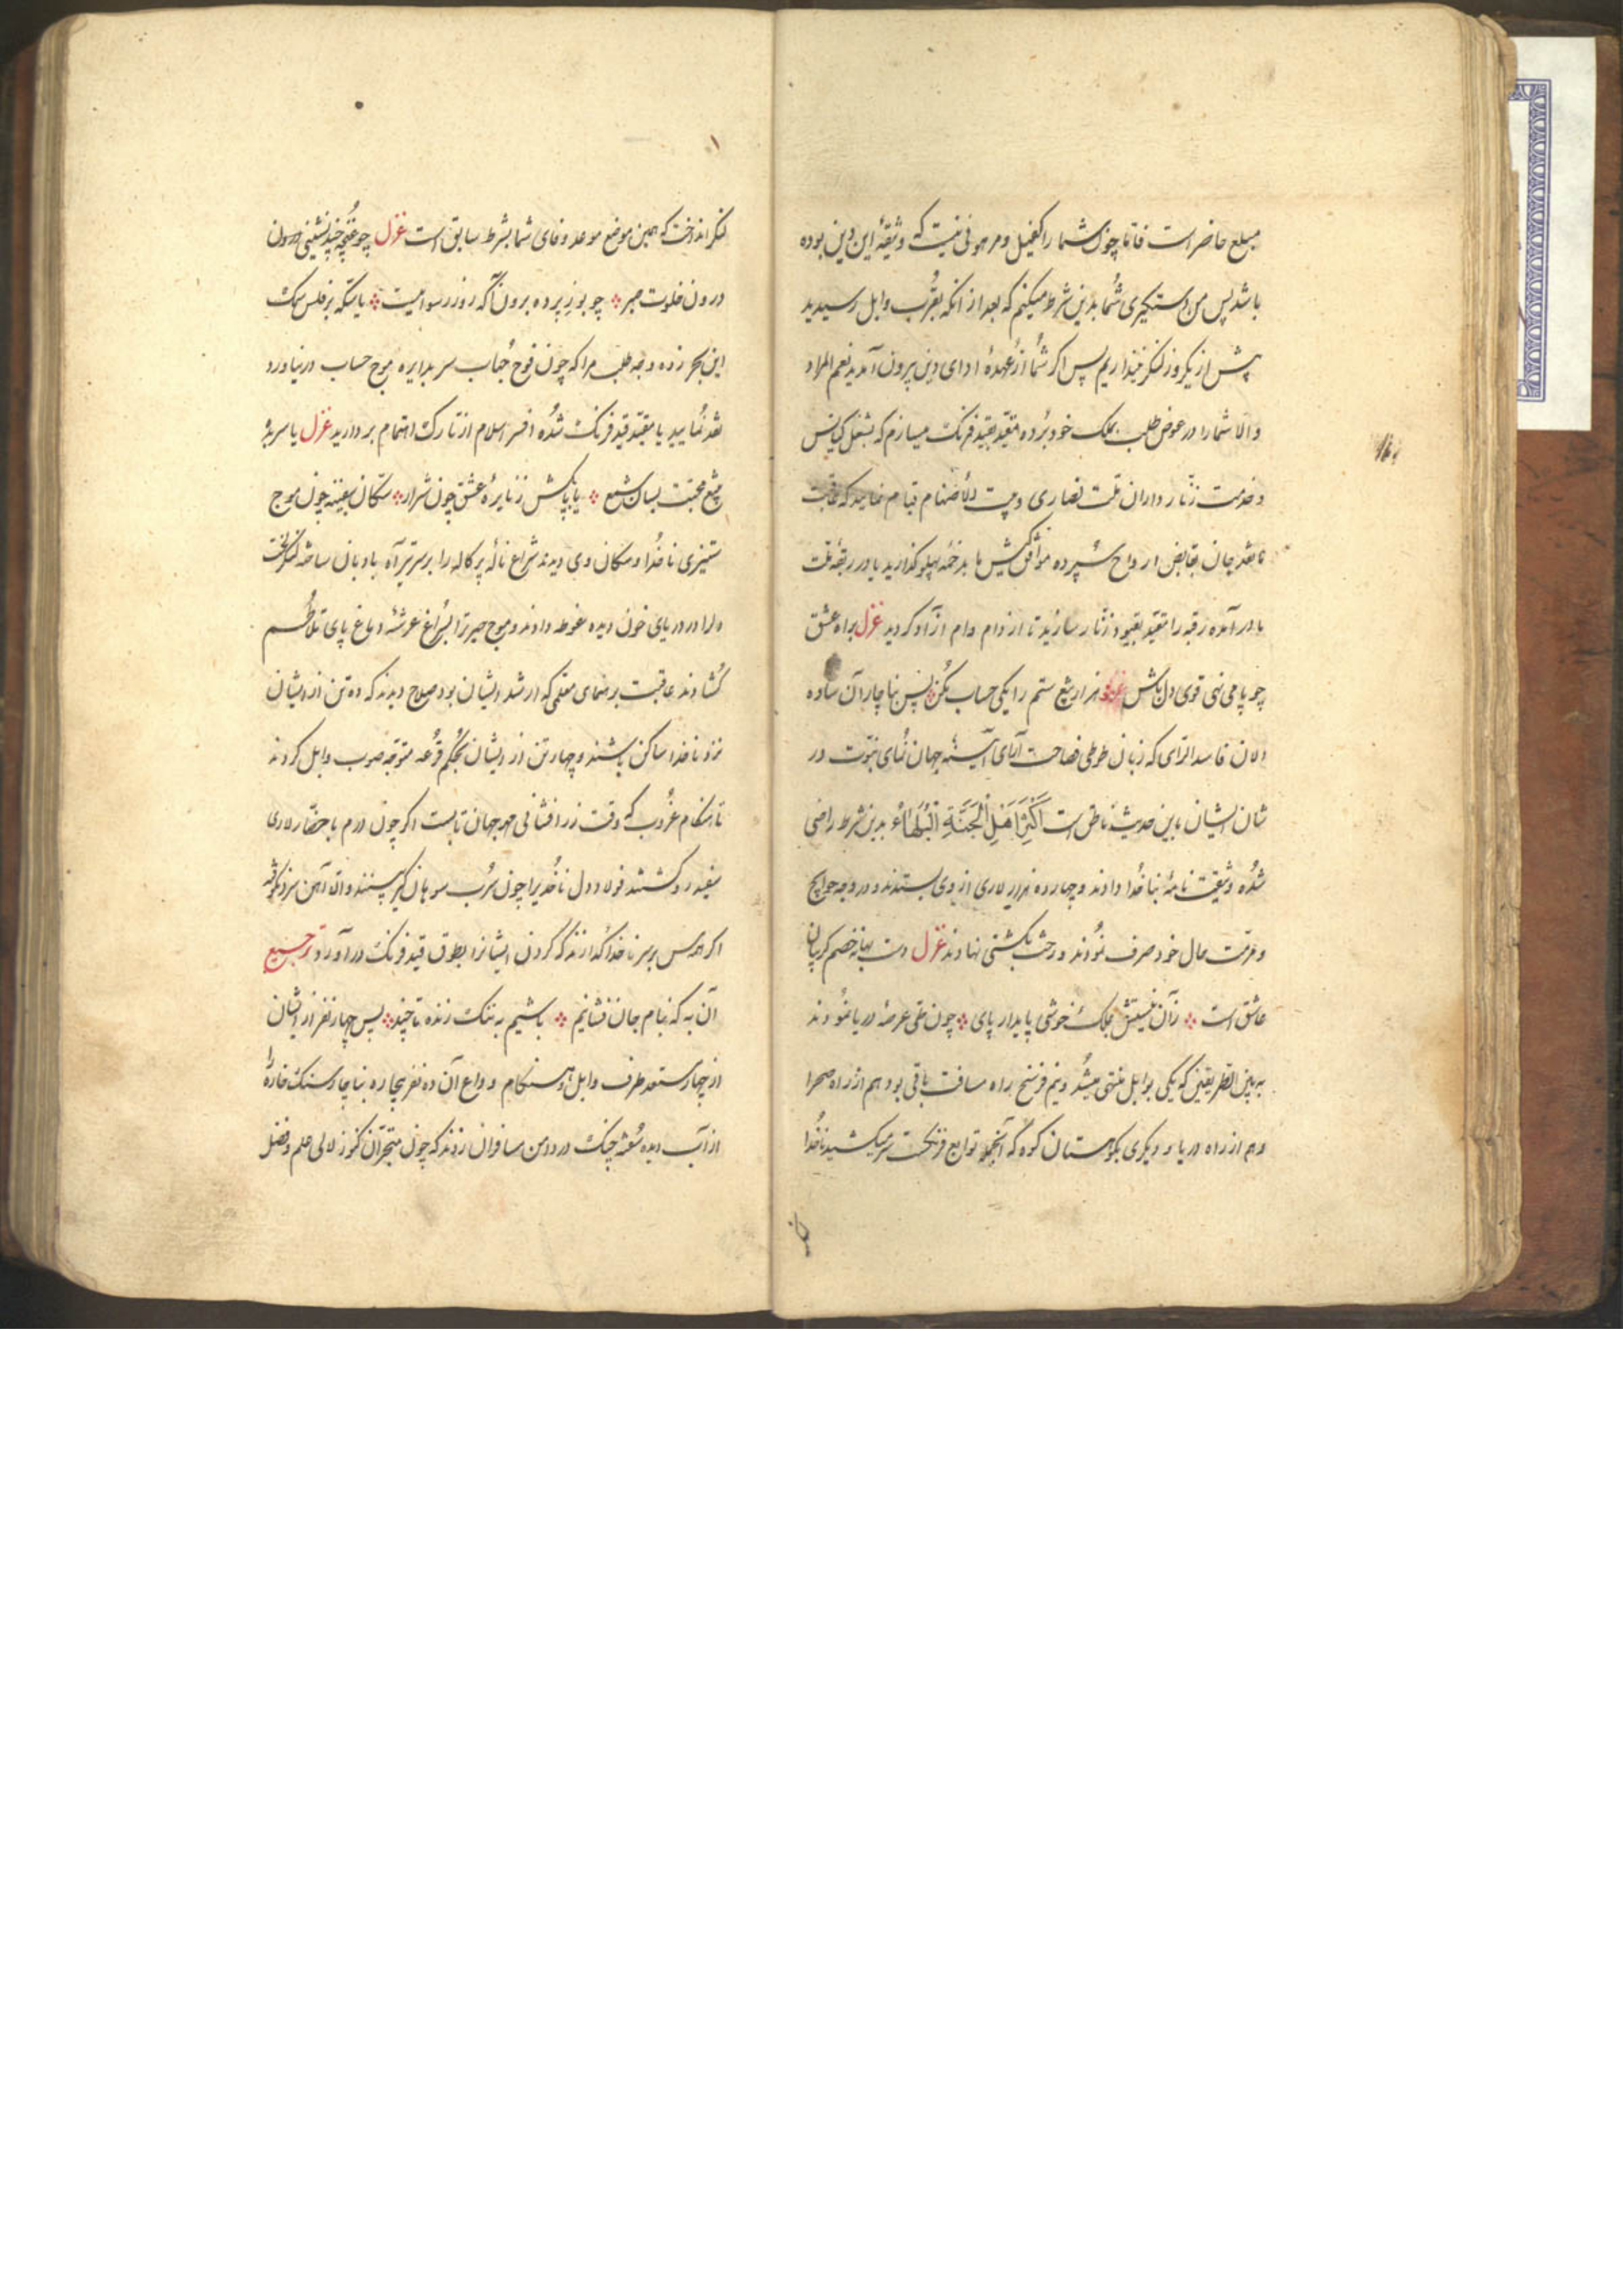 مبلغ حاضر است فامّا چون شما را کفیل و مرهونی نیست که وثیقهٔ این دین بوده
باشد پس من دستگیری شما بدین شرط میکنم که بعد از انکه بقرب وابل رسیدید
پیش از یکروز لنگر نیندازیم پس اگر شما از عهدهٔ ادای دین بیرون آمدید نعم المراد
و الا شما را در عوض طلب بملک خود برده مقیّد بقید فرنک میسازم که بشغل کنایس
و خدمت زنّار داران ملّت نصاری و اصنام قیام نمایید که عاقبت
یا نقد جان بقابض ارواح سپرده موافق کیش ما بدخمه پهلو گذارید یا در ربقهٔ ملّت
ما در آمده رقبه را مقیّد بقیود زنّار سازید تا از دام وام آزاد گردید غزل براه عشق
چو پا می نهی قوی دل باش هزار تیغ ستم را یکی حساب بکن پس ناچار آن ساده
دلان فاسد الرّای که زبان طوطی فصاحت آرای آیینهٔ جهان نمای نبوّت در
شان ایشان باین حدیث ناطق است اَکْثَرُ اَهْلِ الْجَنَّةِ الْبُلَهَاءُ بدین شرط راضی
شده وثیقت نامهٔ بناخدا دادند و چهارده هزار لاری از وی بستدند و در وجه حوایج
و مرمّت حال خود صرف نمودند و رخت بکشتی نهادند غزل دست بهانه خصم گریبان
عاشق است زان نیستش بملک خوشی پایدار پای چون طی عرصهٔ دریا نمودند
به بین الطریقین که یکی بوابل منتهی میشد و نیم فرسخ راه مسافت باقی بود هم از راه صحرا
و هم از راه دریا و دیگری بکوهستان کوه که آنجمله توابع فرنگست سر میکشید ناخدا
لنگر انداخت که همین موضع موعد وفای شما بشرط سابق است غزل چو غنچه چند نشینی درون
درون خلوت صبر چو بوز پرده برون آ که روز رسواییست یا سکّه بر فلس سمک
این بحر زده وجه طلب مرا که چون فوج حباب سر بدایره موج حساب در نیاورد
نقد نمایید یا مقیّد قید فرنک شده افسر اسلام از تارک اهتمام بردارید غزل یا سر بنه
بتیغ محبّت بسان شمع یا پا بکش ز نایرهٔ عشق چون شرار سکّان سفینه چون موج
ستیزی ناخدا و سکان وی دیدند شراع نالهٔ پرکاله را بر سر تیر آه بادبان ساخته لنگر لخت
دل را در دریای خون دیده غوطه دادند و موج حیرت را بسراغ عرشهٔ دماغ پای تلاطم
گشادند عاقبت برهنمای معلّمی که ارشد ایشان بود صلاح دیدند که ده تن از ایشان
نزد ناخدا ساکن باشند و چهار تن از ایشان بحکم قرعه متوجّه صوب وابل گردند
تا هنگام غروب که وقت زر افشانی مهر جهان تابست اگر چون درم با حضّار لاری
سفید رو گشتند فولاد دل ناخدا را چون سُرب سوهان گیر بینند و الّا آهن سرد نکوفته
اگر اه بر سر ناخدا گذارند که گردن ایشانرا بطوق قید فرنک درآورد ترجیع
آن به که بنام جان فشانیم باشیم به ننک زنده تا چند پس چهار نفر از ایشان
از چهار مستعد طرف وابل و هنگام وداع آن ده نفر بیچاره بناچار سنک خاره را
از آب دیده شسته چنک در دامن مسافران زدند که چون متبحّران کنوز لالی علم و فضل